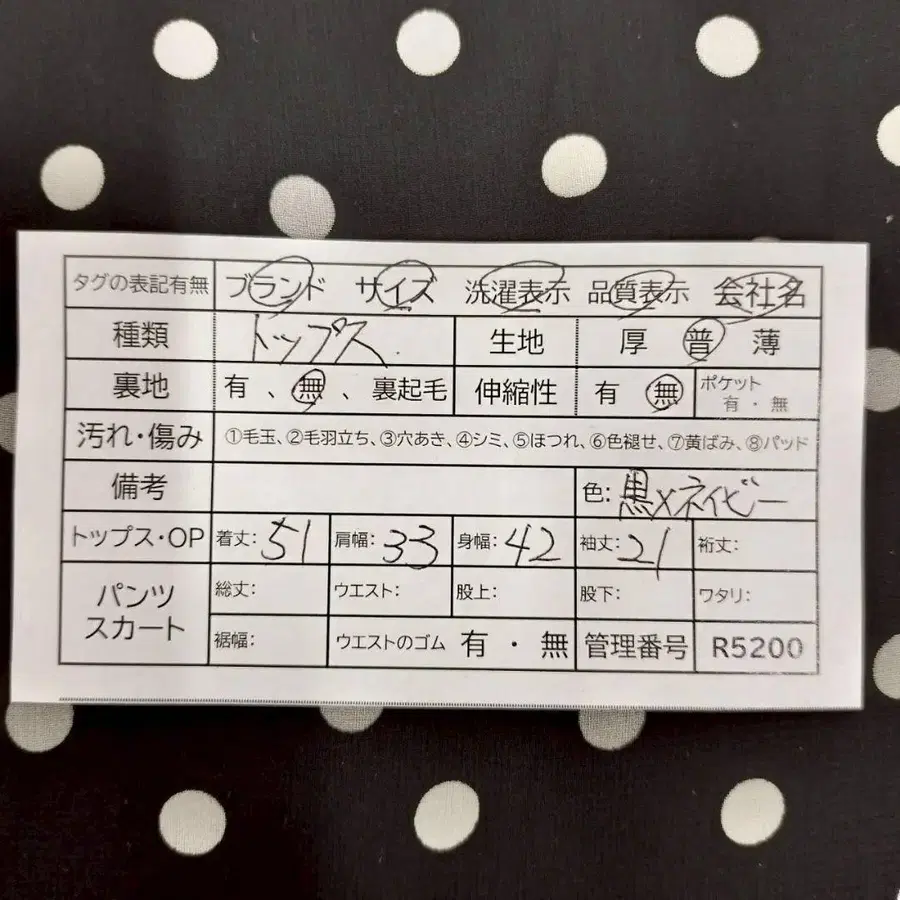 タグの表記有無 ブランド サイズ 洗濯表示 品質表示 会社名
種類 トップス 生地 厚 普 薄
裏地 有、無、裏起毛 伸縮性 有 無 ポケット 有・無
汚れ・傷み ①毛玉、②毛羽立ち、③穴あき、④シミ、⑤ほつれ、⑥色褪せ、⑦黄ばみ、⑧パッド
備考 色: 黒×ネイビー
トップス・OP 着丈: 51 肩幅: 33 身幅: 42 袖丈: 21 裄丈:
パンツ スカート 総丈: ウエスト: 股上: 股下: ワタリ:
裾幅: ウエストのゴム 有・無 管理番号 R5200